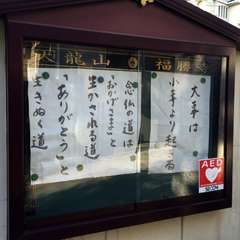 龍山 福勝
大事は
小事より起こる
念仏の道は
「おかげさま」と
生かされる道
「ありがとう」と
生きぬく道
AED
SECOM